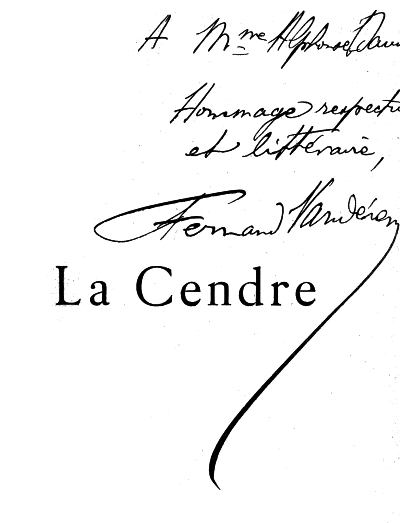 A Mme Alphonse Dau
Hommage respectu
et littéraire,
Fernand Vandérem
La Cendre